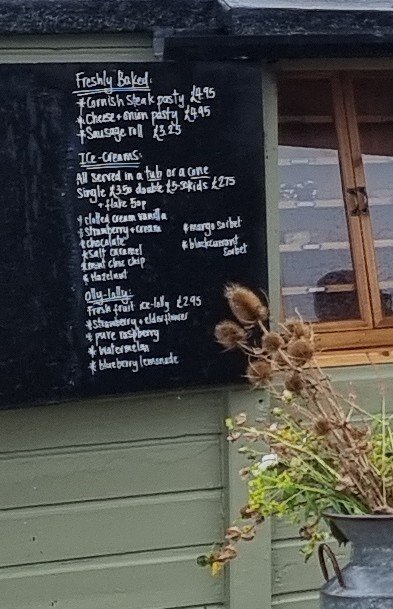 Freshly Baked:
* Cornish Steak pasty £4.95
* Cheese + onion pasty £4.95
* Sausage roll £3.25
Ice-Creams:
All served in a tub or a cone
Single £3.50 double £5.50 kids £2.75
+ flake 50p
* clotted cream vanilla
* Strawberry + cream
* chocolate
* Salt caramel
* mint choc chip
* Hazelnut
* mango sorbet
* blackcurrant
Sorbet
Olly-lolly:
Fresh fruit ice-lolly £2.95
* Strawberry + elderflower
* pure raspberry
* Watermelon
* blueberry lemonade